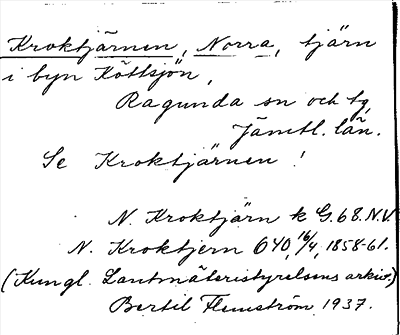 Kroktjärnen, Norra, tjärn
i byn Köttsjön,
Ragunda sn och tg,
Jämtl. län.
Se Kroktjärnen!
N. Kroktjärn k G.68.N.V.
N. Kroktjern 640, 16/4, 1858-61.
(Kungl. Lantmäteristyrelsens arkiv.)
Bertil Flemström 1937.